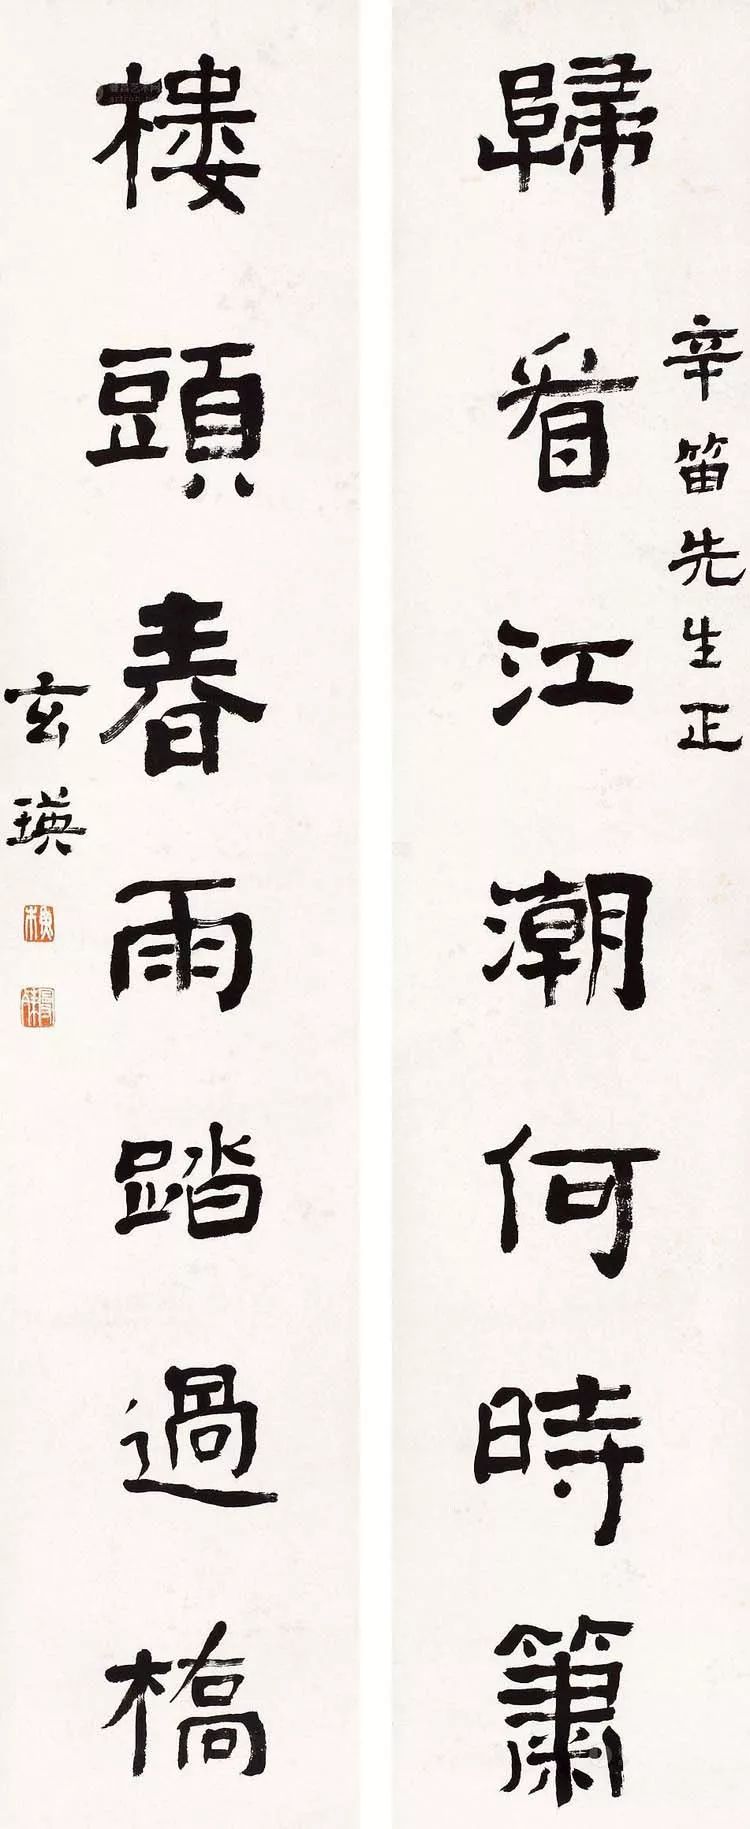 辛笛先生正
歸看江潮何時簫
樓頭春雨踏過橋
玄瑛